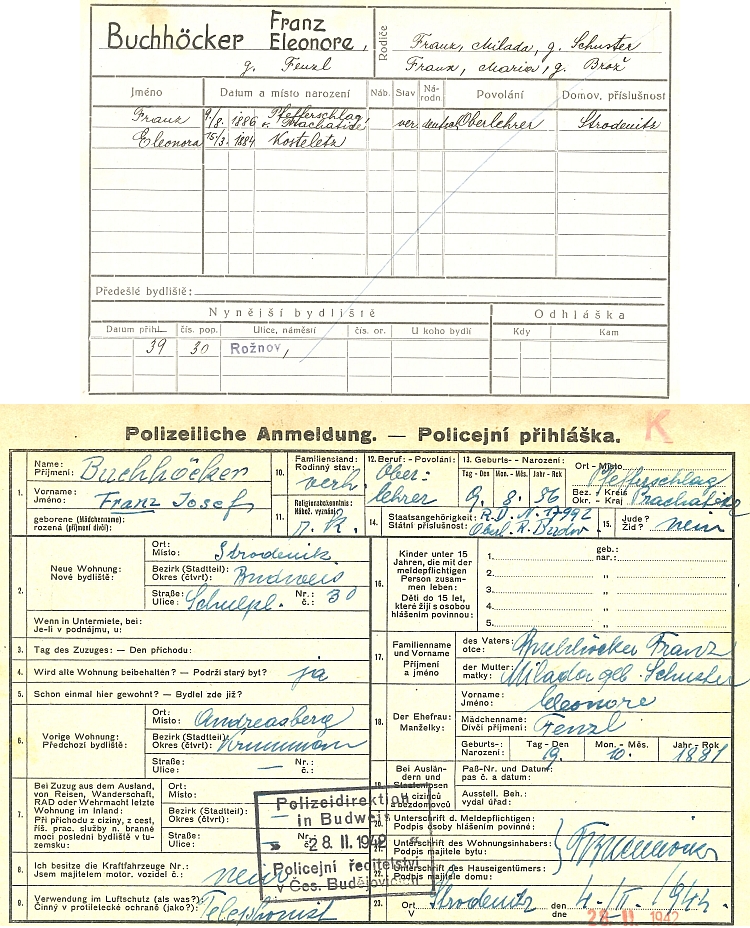 Buchhöcker Franz
Eleonore,
g. Fenzl
Rodiče
Franz, Milada, g. Schuster
Franz, Maria, g. Brož
Jméno Datum a místo narození Náb. Stav Ná-rodn. Povolání Domov. příslušnost
Franz 9/8. 1886 Pfefferschlag ver. Oberlehrer Strodenitz
Eleonora 15/3. 1884 Kosteletz
Předešlé bydliště:
Nynější bydliště Odhláška
Datum přihl. čís. pop. Ulice, náměstí čís. or. U koho bydlí Kdy Kam
39 30 Rožnov,
Polizeiliche Anmeldung. — Policejní přihláška. K
1.
Name: Příjmení: Buchhöcker
Vorname: Jméno: Franz Josef
geborene (Mädchenname): rozená (příjmení dívčí):
10. Familienstand: Rodinný stav: verh.
11. Religionsbekenntnis: Nábož. vyznání: r. k.
12. Beruf: - Povolání: Oberlehrer
13. Geburts- - Narození:
Tag - Den Mon. - Měs. Jahr - Rok
9. 8. 86
Ort - Místo Pfefferschlag
Bez. - Kreis Okr. - Kraj Prachatitz
14. Staatsangehörigkeit: Státní příslušnost: R. D. N. 17992
Oberl. R. Budw
15. Jude? Žid? nein
2. Neue Wohnung: Nové bydliště:
Ort: Místo: Strodenitz
Bezirk (Stadtteil): Okres (čtvrt): Budweis
Straße: Ulice: Schulpl. Nr.: č.: 30
Wenn in Untermiete, bei: Je-li v podnájmu, u:
3. Tag des Zuzuges: — Den příchodu:
4. Wird alte Wohnung beibehalten? — Podrží starý byt? ja
5. Schon einmal hier gewohnt? — Bydlel zde již?
6. Vorige Wohnung: Předchozí bydliště:
Ort: Místo: Andreasberg
Bezirk (Stadtteil): Okres (čtvrt): Krummau
Straße: Ulice: — Nr.: č.:
7. Bei Zuzug aus dem Ausland, von Reisen, Wanderschaft, RAD oder Wehrmacht letzte Wohnung im Inland:
Při příchodu z ciziny, z cest, říš. prac. služby n. branné moci poslední bydliště v tuzemsku:
Ort: Místo:
Bezirk (Stadtteil): Okres (čtvrt):
Straße: Ulice: Nr.: č.:
8. Ich besitze die Kraftfahrzeuge Nr.: Jsem majitelem motor. vozidel č.: nein
9. Verwendung im Luftschutz (als was?): Činný v protiletecké ochraně (jako?): Telephonist
16. Kinder unter 15 Jahren, die mit der meldepflichtigen Person zusammen leben:
Děti do 15 let, které žijí s osobou hlášením povinnou:
geb.: nar.:
1.
2. „
3. „
4. „
5. „
17. Familienname und Vorname Příjmení a jméno
des Vaters: otce: Buchhöcker Franz
der Mutter: matky: Milada geb. Schuster
18. Der Ehefrau: Manželky:
Vorname: Jméno: Eleonore
Mädchenname: Dívčí příjmení: Fenzl
Geburts-: Narození: Tag - Den Mon. - Měs. Jahr - Rok
19. 10. 1881
19. Bei Ausländern und Staatenlosen U cizinců a bezdomovců
Paß-Nr. und Datum: pas č. a datum:
Ausstell. Beh.: vydal úřad:
20. Unterschrift d. Meldepflichtigen: Podpis osoby hlášením povinné:
21. Unterschrift des Wohnungsinhabers: Podpis majitele bytu:
22. Unterschrift des Hauseigentümers: Podpis majitele domu:
23. Ort V Strodenitz den dne 4. / II. 1942.
28 -II- 1942
Polizeidirektion
in Budweis
28. II. 1942
Policejní ředitelství
v Čes. Budějovicích